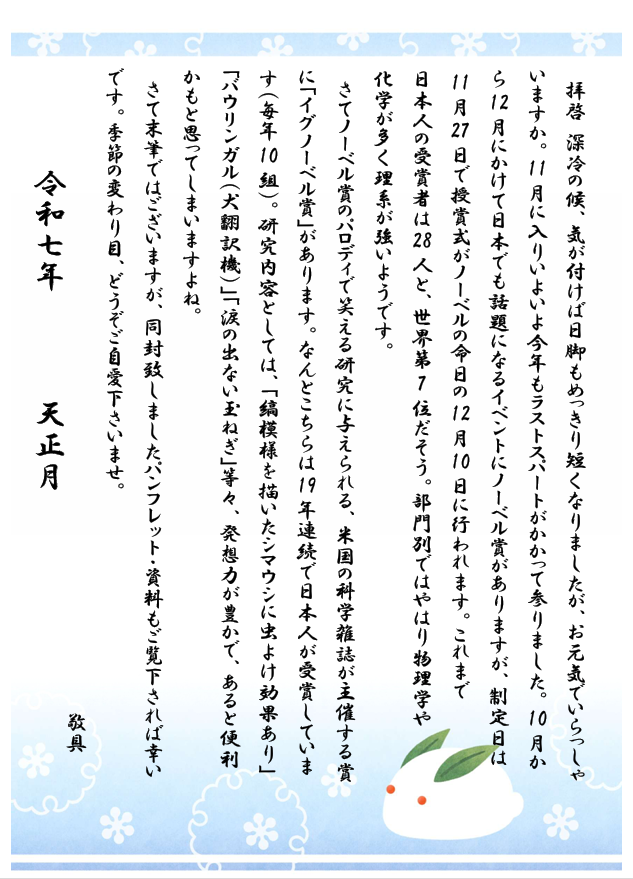 拝啓 深冷の候、気が付けば日脚もめっきり短くなりましたが、お元気でいらっしゃ
いますか。11月に入りいよいよ今年もラストスパートがかかって参りました。10月か
ら12月にかけて日本でも話題になるイベントにノーベル賞がありますが、制定日は
11月27日で授賞式がノーベルの命日の12月10日に行われます。これまで
日本人の受賞者は28人と、世界第7位だそう。部門別ではやはり物理学や
化学が多く理系が強いようです。
さてノーベル賞のパロディで笑える研究に与えられる、米国の科学雑誌が主催する賞
に「イグノーベル賞」があります。なんとこちらは19年連続で日本人が受賞していま
す(毎年10組)。研究内容としては、「縞模様を描いたシマウシに虫よけ効果あり」
「バウリンガル(犬翻訳機)」「涙の出ない玉ねぎ」等々、発想力が豊かで、あると便利
かもと思ってしまいますよね。
さて末筆ではございますが、同封致しましたパンフレット・資料もご覧下されば幸い
です。季節の変わり目、どうぞご自愛下さいませ。
敬具
令和七年 天正月